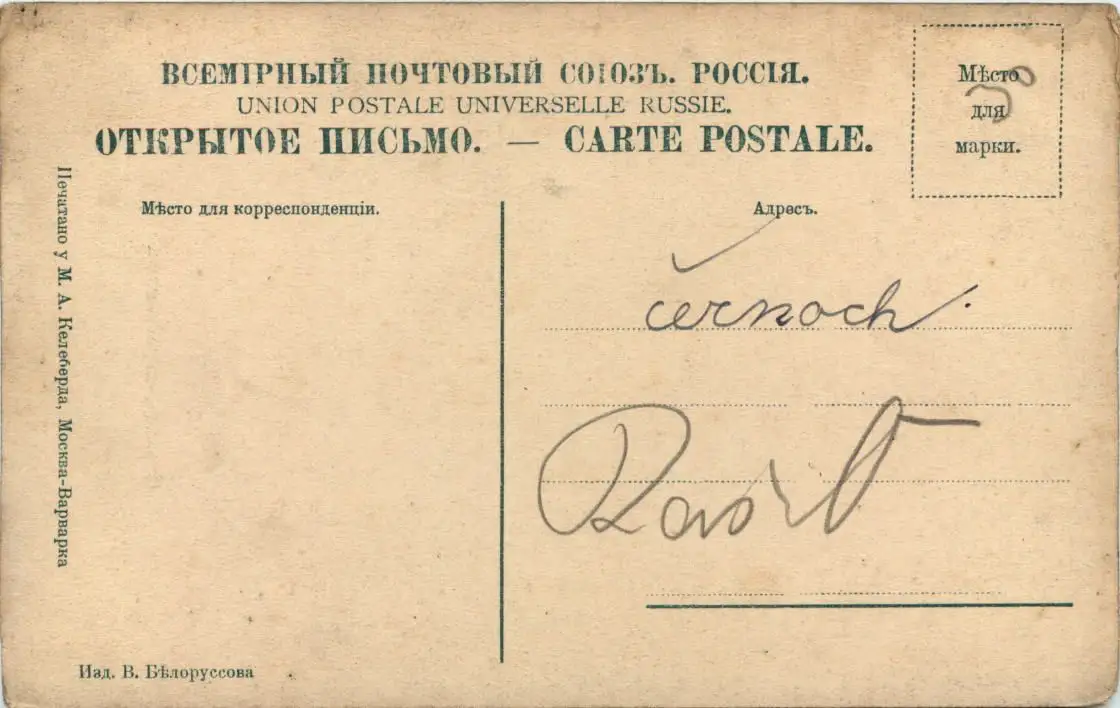 ВСЕМІРНЫЙ ПОЧТОВЫЙ СОЮЗЪ. РОССІЯ.
UNION POSTALE UNIVERSELLE RUSSIE.
ОТКРЫТОЕ ПИСЬМО. — CARTE POSTALE.
Мѣсто
для
марки.
30
Мѣсто для корреспонденціи.
Адресъ.
černoch
Печатано у М. А. Келеберда, Москва-Варварка
Изд. В. Бѣлоруссова